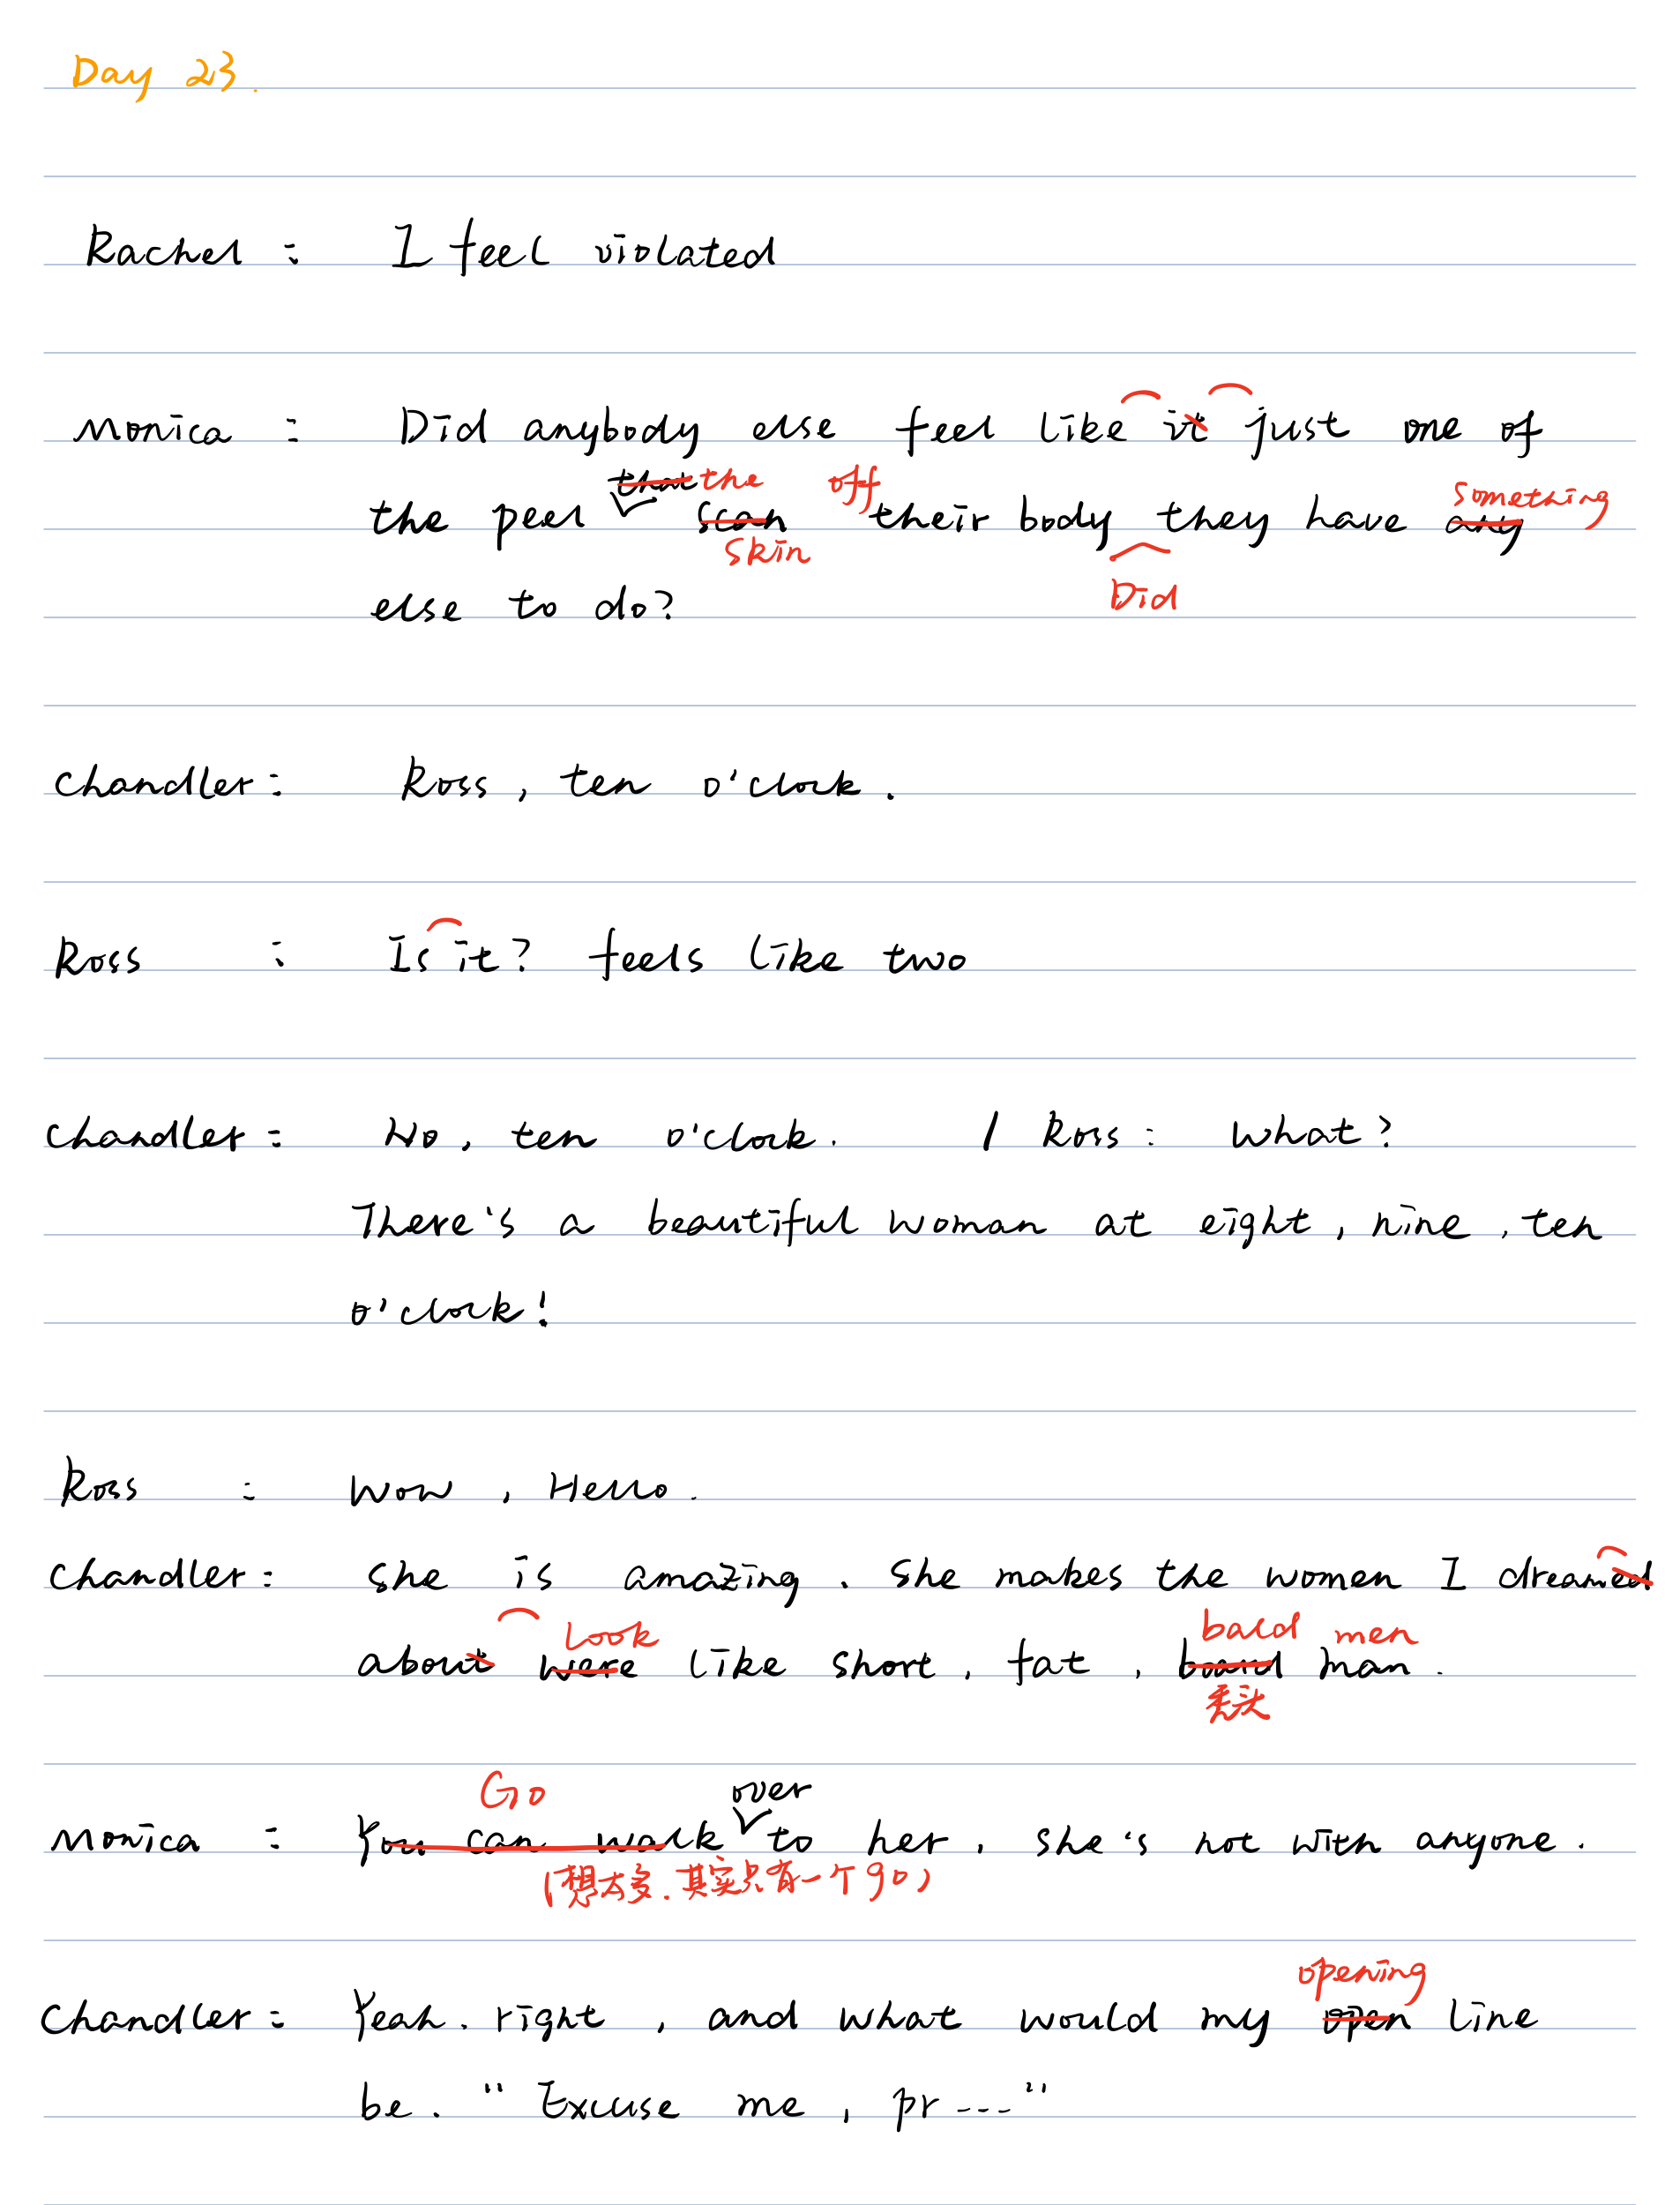 Day 23.
Rachel : I feel violated
Monica : Did anybody else feel like it just one of
that the off something
the peel scan their body they have any
skin Did
else to do?
Chandler : Ross, ten o'clock.
Ross : Is it? feels like two
Chandler : No, ten o'clock. / Ross : What?
There's a beautiful woman at eight, nine, ten
o'clock!
Ross : Wow, Hello.
Chandler : She is amazing. She makes the women I dreamed
look bald men
about were like short, fat, board man.
秃头
Go over
Monica : You can walk to her, she's not with anyone.
(想太多.其实只有一个go)
opening
Chandler : Yeah. right, and what would my open line
be. "Excuse me, pr---"